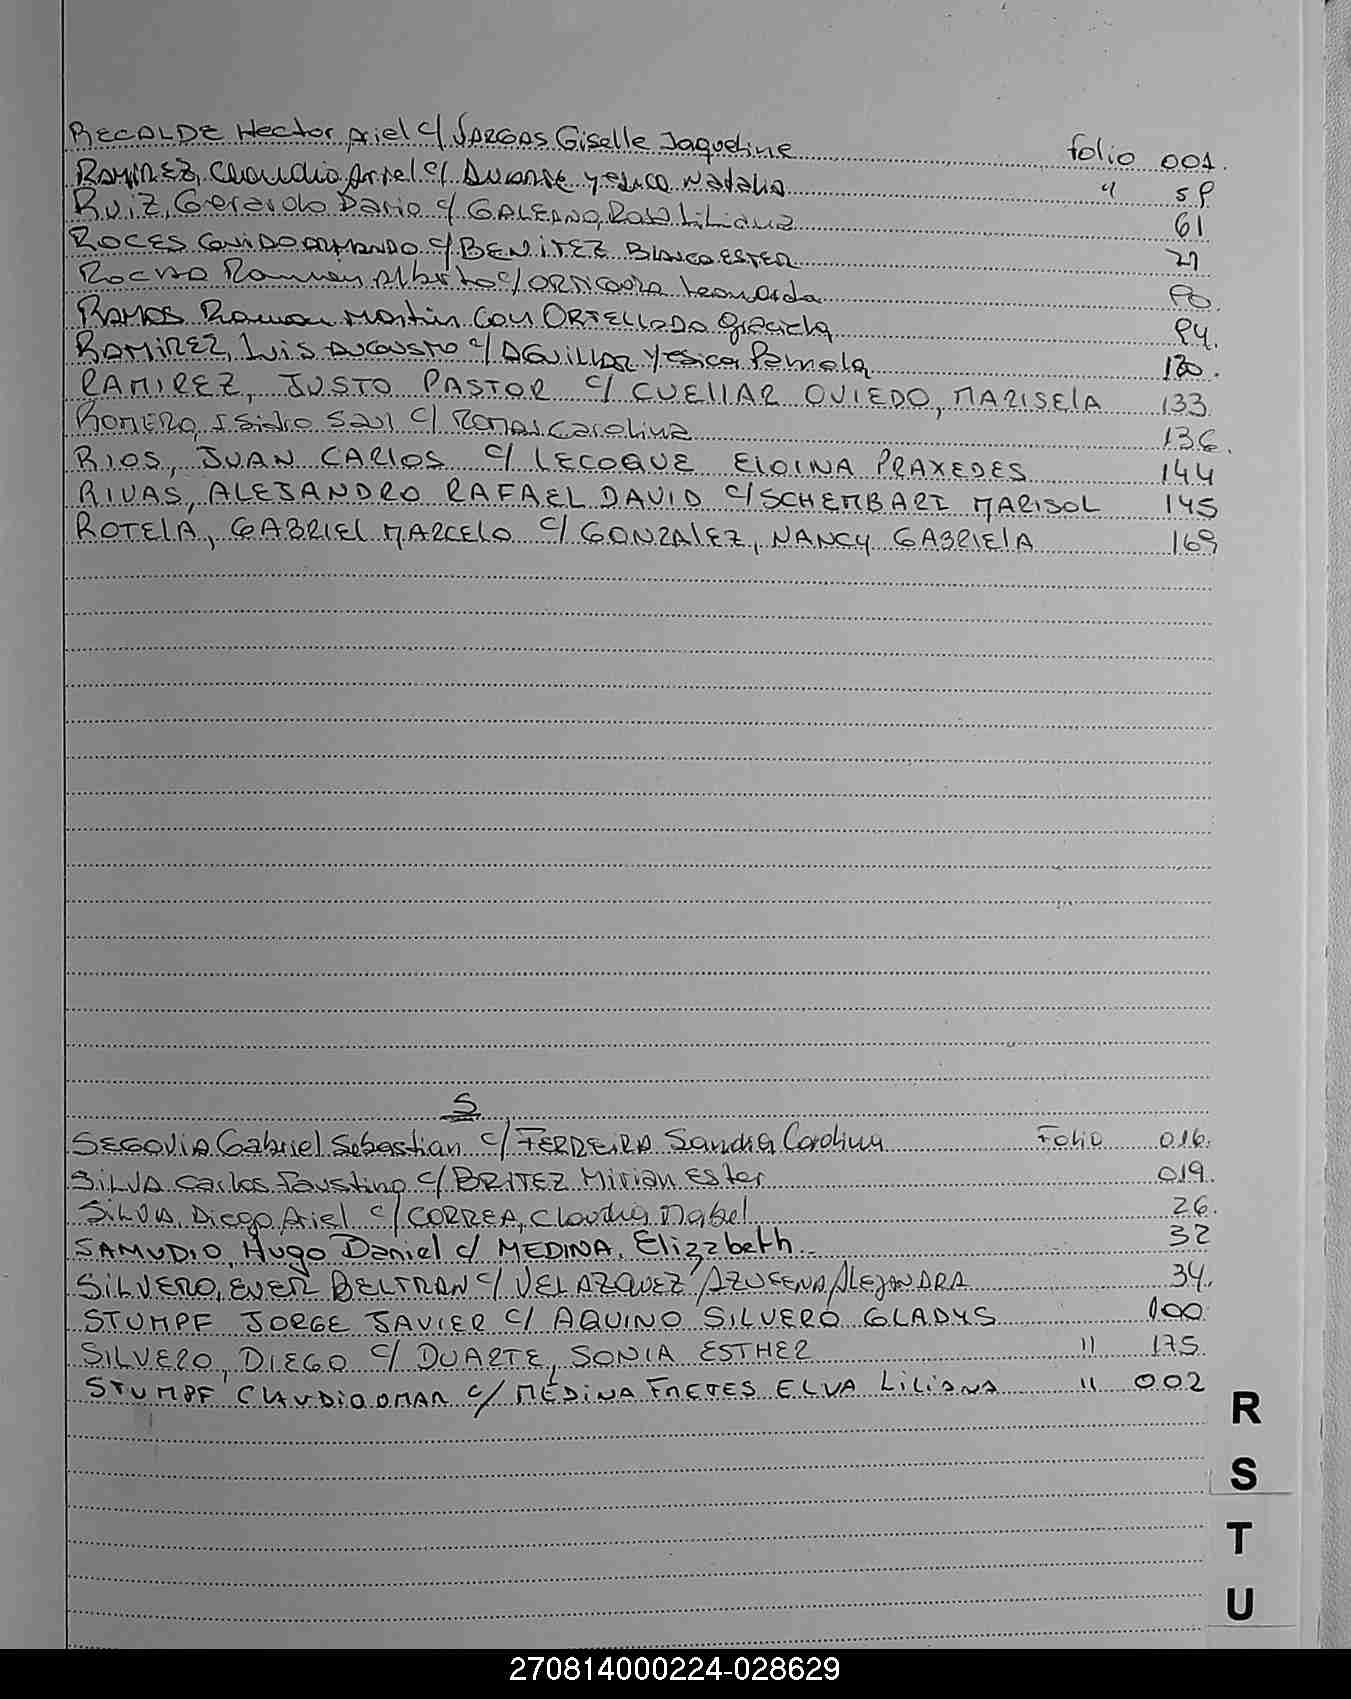 RECALDE Hector Ariel c/ VARGAS Giselle Jaqueline folio 001.
RAMIREZ, Claudio Ariel c/ Duarte yesica Natalia " 58
RUIZ, Gerardo Dario c/ GALEANO, Rosa Liliana 61
ROCES GUIDO ARMANDO c/ BENITEZ Blanca ESTER 71
Rocha Ramon Alberto c/ Leonarda 80.
RAMOS Ramon Martin con ORTELLADO Graciela 84.
RAMIREZ, Luis AUGUSTO c/ AGUILLAR Yesica Pamela 130.
RAMIREZ, JUSTO PASTOR c/ CUELLAR OVIEDO, MARISELA 133
ROMERO, Isidro Saul c/ Carolina 136.
RIOS, JUAN CARLOS c/ LECOQUE ELOINA PRAXEDES 144
RIVAS, ALEJANDRO RAFAEL DAVID c/ SCHEMBARI MARISOL 145
ROTELA, GABRIEL MARCELO c/ GONZALEZ, NANCY GABRIELA 169
S
SEGOVIA Gabriel Sebastian c/ FERREIRA Sandra Carolina Folio 016.
SILVA Carlos Faustino c/ BRITEZ Mirian Ester 019.
SILVA, Diego Ariel c/ CORREA, Claudia Mabel 26.
SAMUDIO, Hugo Daniel c/ MEDINA, Elizabeth 32
SILVERO, EVER BELTRAN c/ VELAZQUEZ, AZUSENA ALEJANDRA 34.
STUMPF JORGE JAVIER c/ AQUINO SILVERO GLADYS 100
SILVERO, DIEGO c/ DUARTE, SONIA ESTHER " 175
STUMPF CLAUDIO OMAR c/ MEDINA FRETES ELVA LILIANA " 002
R
S
T
U
270814000224-028629